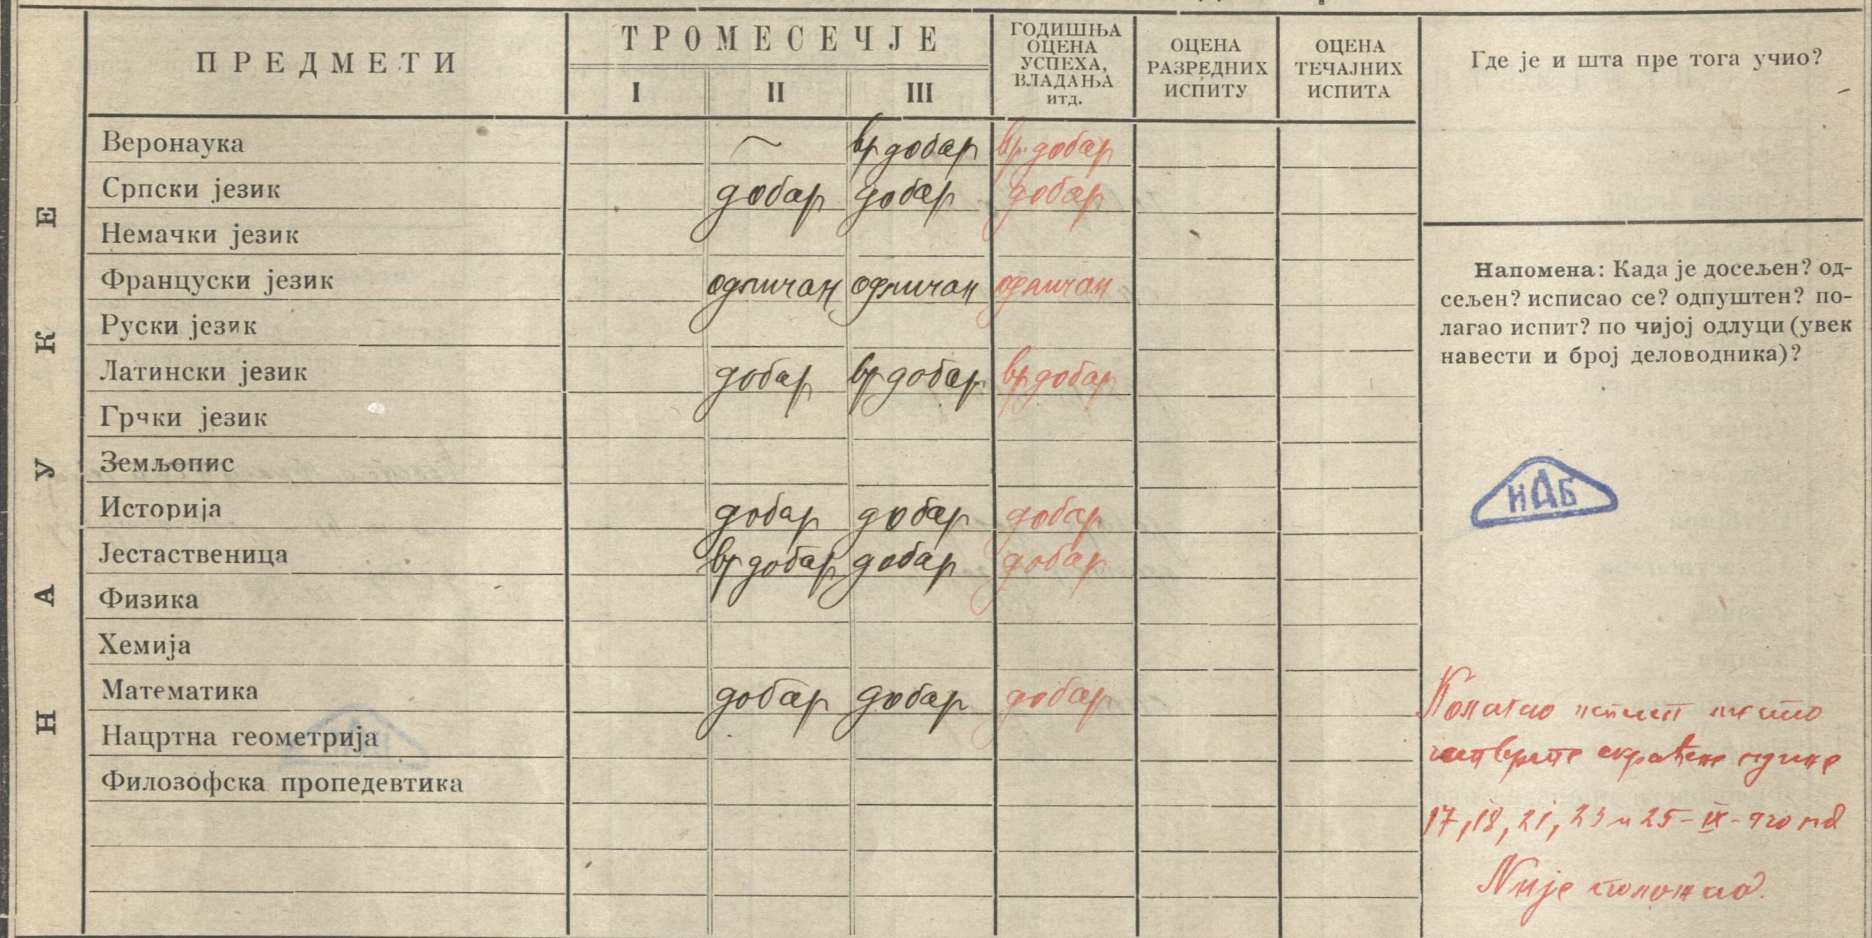 ПРЕДМЕТИ
ТРОМЕСЕЧЈЕ
I II III
ГОДИШЊА
ОЦЕНА
УСПЕХА,
ВЛАДАЊА
итд.
ОЦЕНА
РАЗРЕДНИХ
ИСПИТУ
ОЦЕНА
ТЕЧАЈНИХ
ИСПИТА
Где је и шта пре тога учио?
НАУКЕ
Веронаука ~ вр добар вр. добар
Српски језик добар добар добар
Немачки језик
Француски језик одличан одличан одличан
Руски језик
Латински језик добар вр добар вр добар
Грчки језик
Земљопис
Историја добар добар добар
Јестаственица вр добар добар добар
Физика
Хемија
Математика добар добар добар
Нацртна геометрија
Филозофска пропедевтика
Напомена: Када је досељен? од-
сељен? исписао се? одпуштен? по-
лагао испит? по чијој одлуци (увек
навести и број деловодника)?
ИАБ
Полагао испит
скраћене године
17, 18, 21, 23 и 25-IX-920
Није положио.